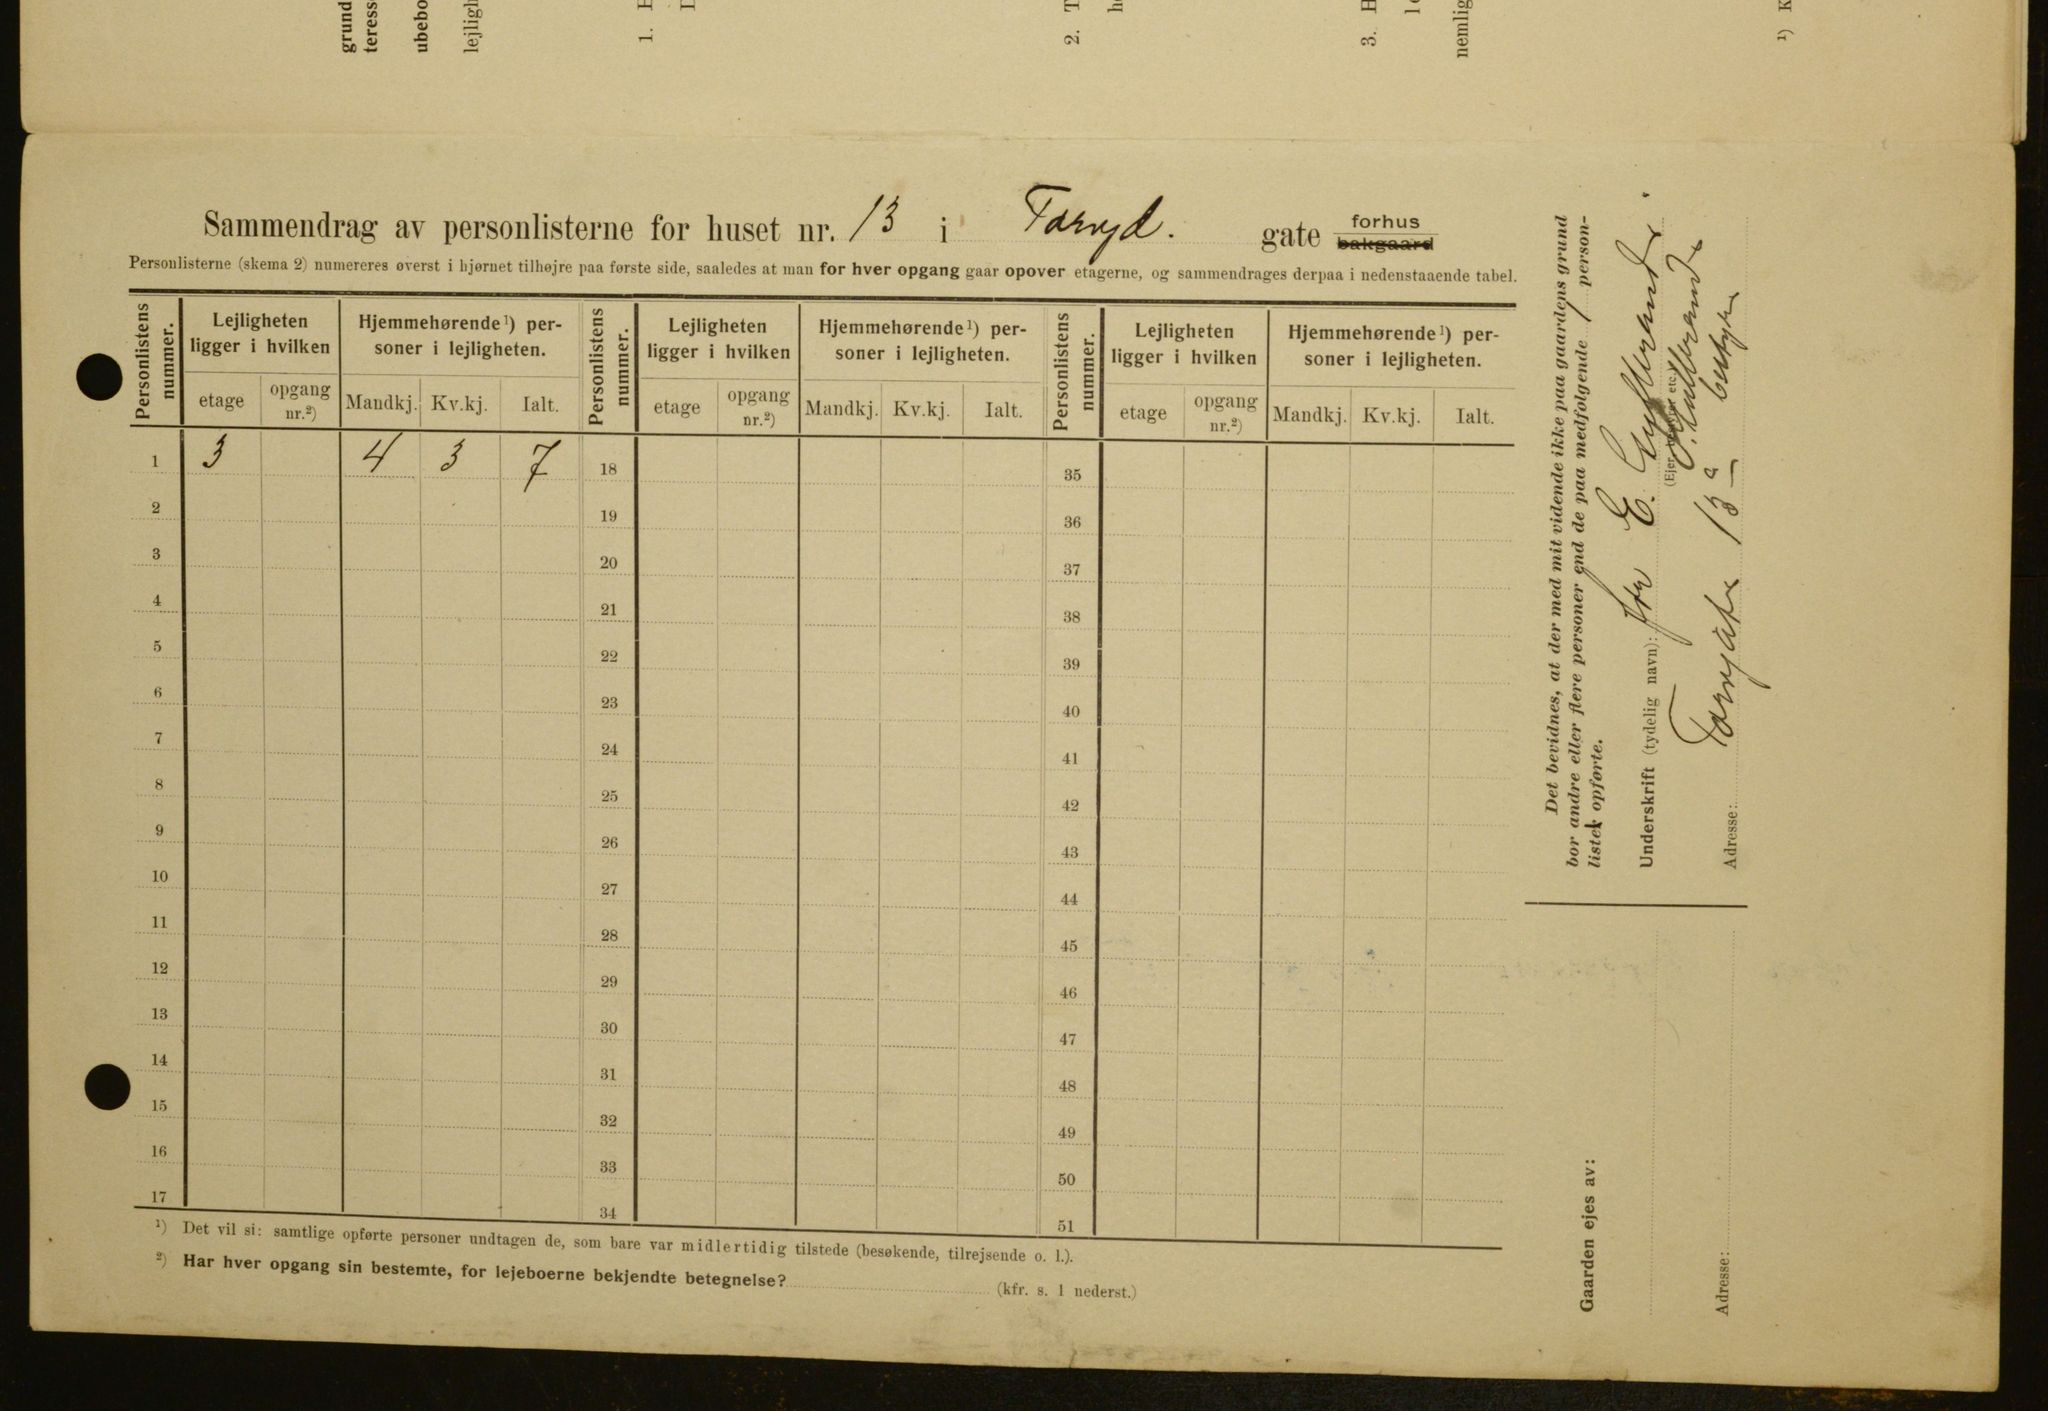 grund
teress
ubebo
lejligh
1. H
2. T
3. H
nemlig
¹) K
Sammendrag av personlisterne for huset nr. 13 i gate forhus bakgaard
Personlisterne (skema 2) numereres øverst i hjørnet tilhøjre paa første side, saaledes at man for hver opgang gaar opover etagerne, og sammendrages derpaa i nedenstaaende tabel.
Personlistens nummer. Lejligheten ligger i hvilken Hjemmehørende¹) personer i lejligheten. Personlistens nummer. Lejligheten ligger i hvilken Hjemmehørende¹) personer i lejligheten. Personlistens nummer. Lejligheten ligger i hvilken Hjemmehørende¹) personer i lejligheten.
etage opgang nr.²) Mandkj. Kv.kj. Ialt. etage opgang nr.²) Mandkj. Kv.kj. Ialt. etage opgang nr.²) Mandkj. Kv.kj. Ialt.
1 3 4 3 7 18 35
2 19 36
3 20 37
4 21 38
5 22 39
6 23 40
7 24 41
8 25 42
9 26 43
10 27 44
11 28 45
12 29 46
13 30 47
14 31 48
15 32 49
16 33 50
17 34 51
¹) Det vil si: samtlige opførte personer undtagen de, som bare var midlertidig tilstede (besøkende, tilrejsende o. l.).
²) Har hver opgang sin bestemte, for lejeboerne bekjendte betegnelse? (kfr. s. 1 nederst.)
Det bevidnes, at der med mit vidende ikke paa gaardens grund
bor andre eller flere personer end de paa medfølgende 1 person-
lister opførte.
Underskrift (tydelig navn): for E.
(Ejer, etc.)
Adresse: 13a
Gaarden ejes av:
Adresse: